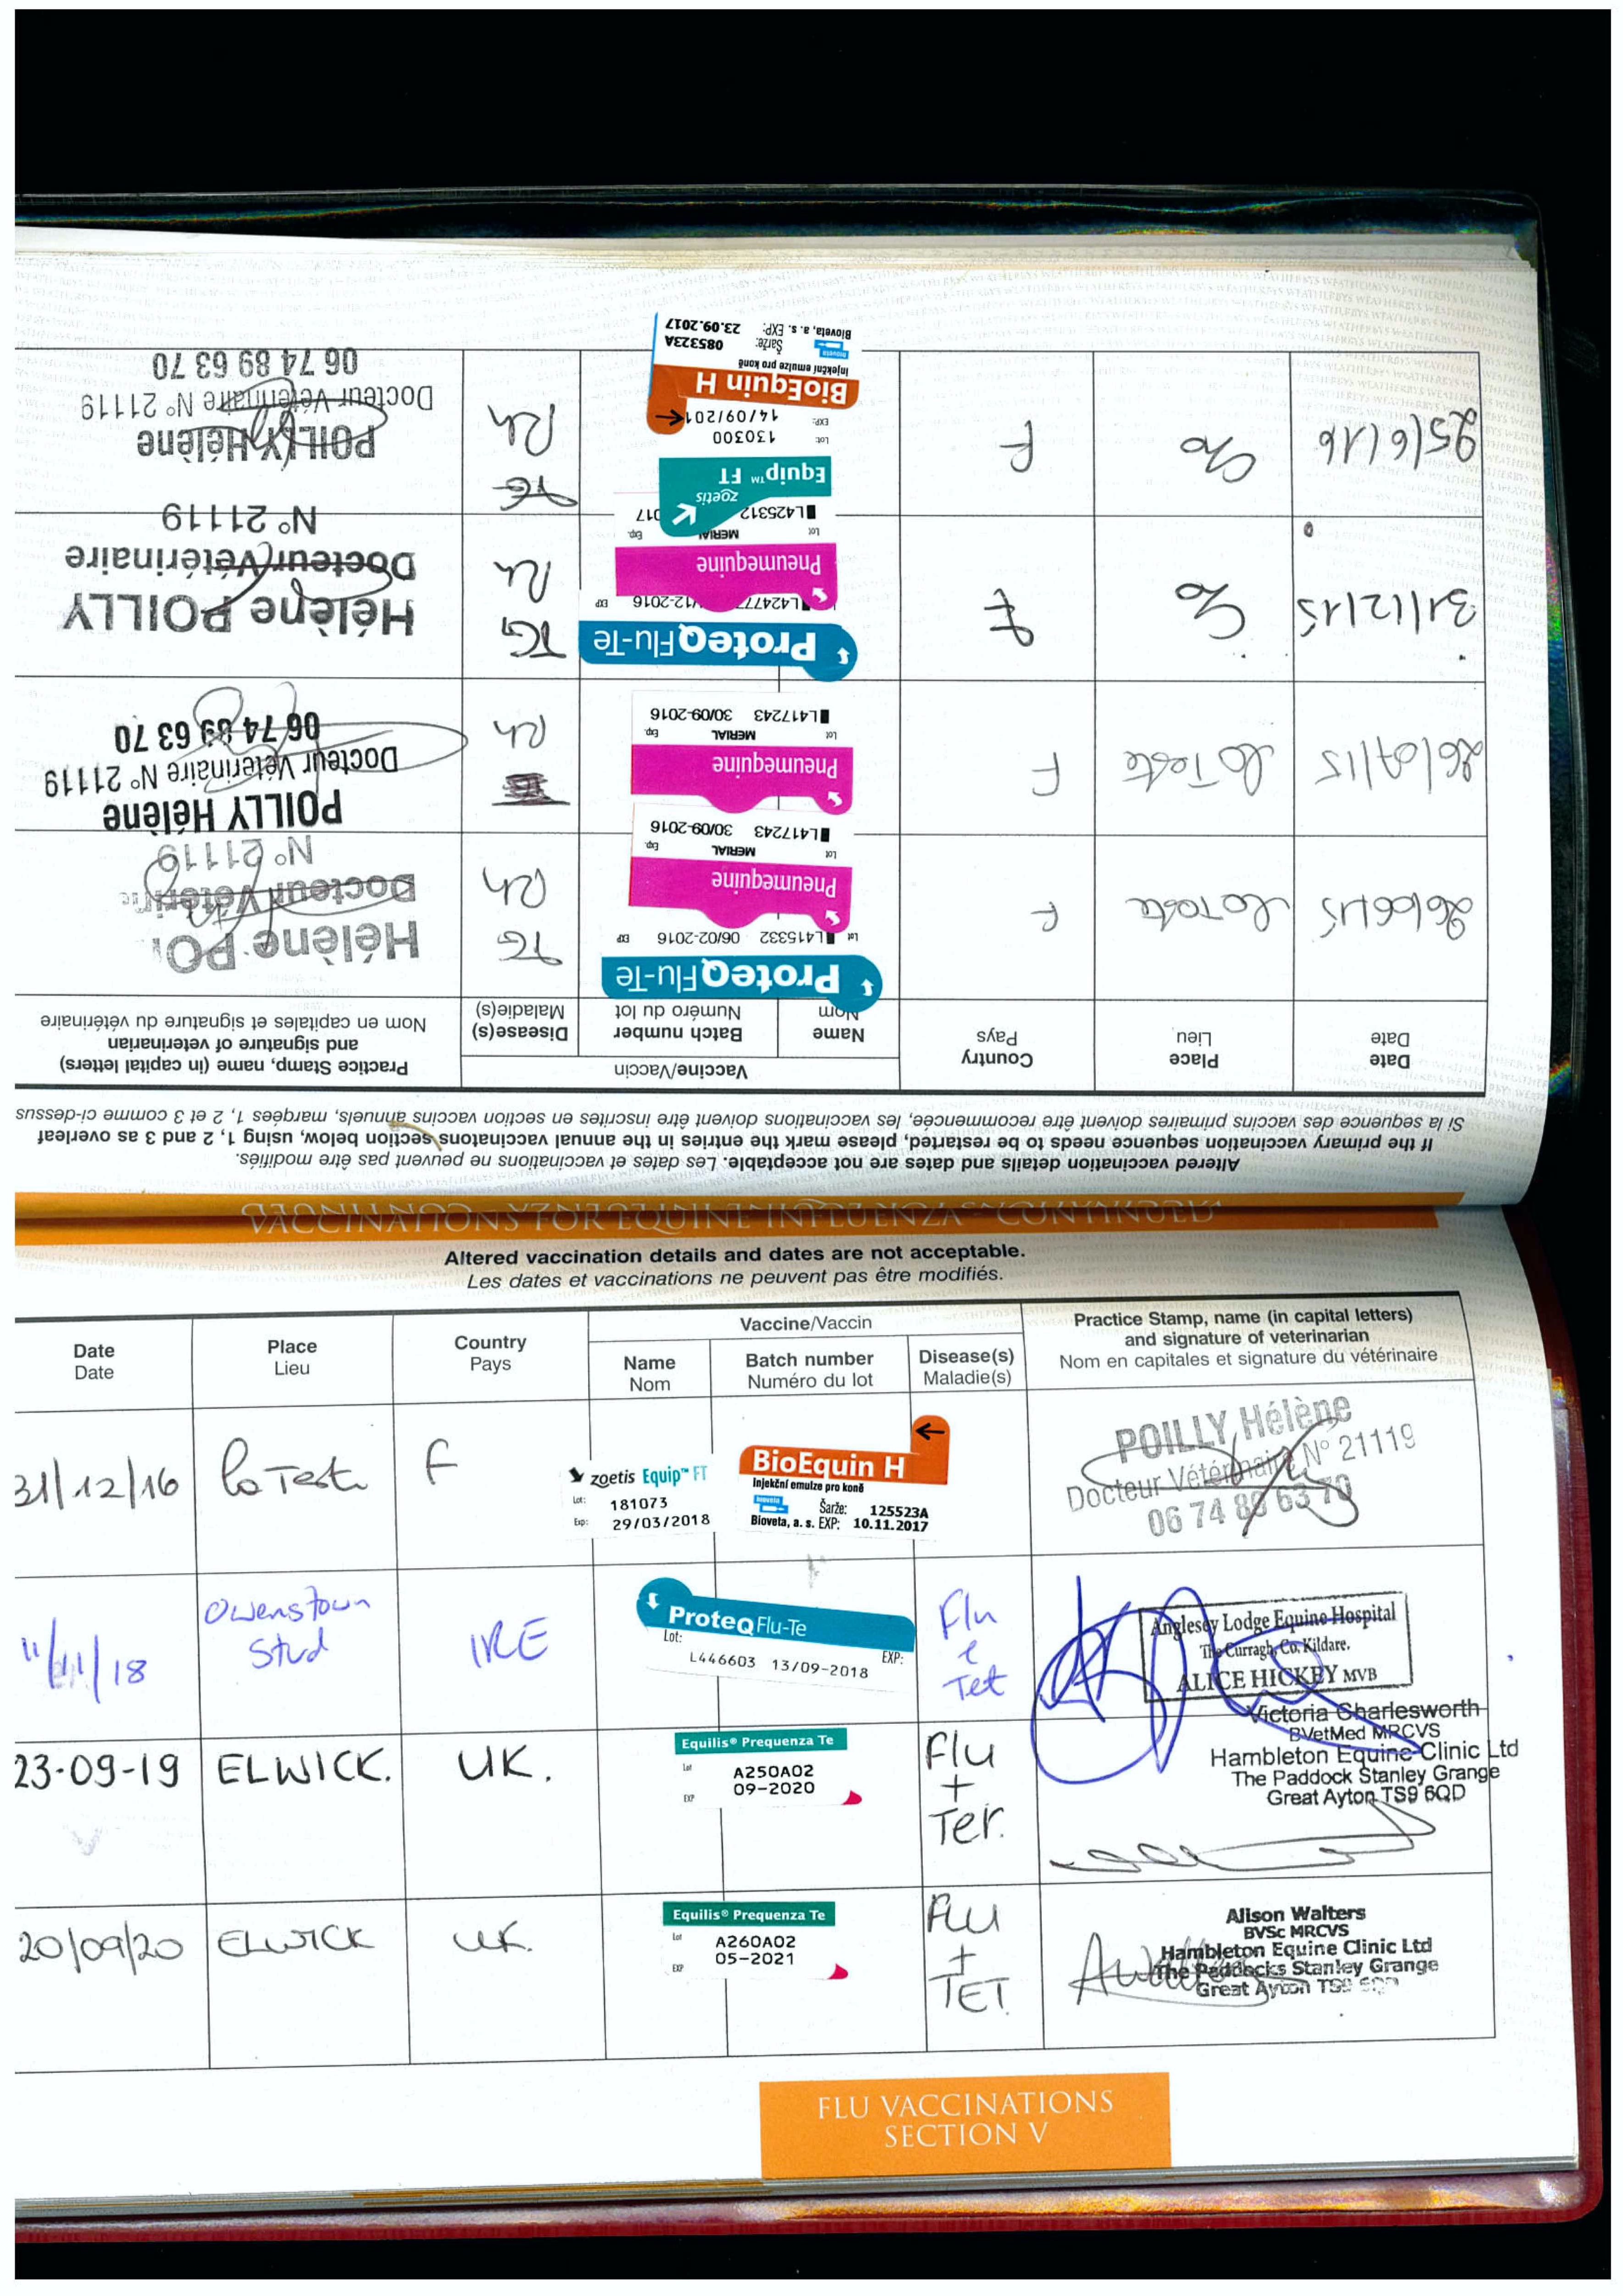 VACCINATIONS FOR EQUINE INFLUENZA - CONTINUED
Altered vaccination details and dates are not acceptable. Les dates et vaccinations ne peuvent pas être modifiés.
If the primary vaccination sequence needs to be restarted, please mark the entries in the annual vaccinatons section below, using 1, 2 and 3 as overleaf
Si la sequence des vaccins primaires doivent être recommencée, les vaccinations doivent être inscrites en section vaccins annuels, marqées 1, 2 et 3 comme ci-dessus
Date
Date
Place
Lieu
Country
Pays
Vaccine/Vaccin
Name
Nom
Batch number
Numéro du lot
Disease(s)
Maladie(s)
Practice Stamp, name (in capital letters)
and signature of veterinarian
Nom en capitales et signature du vétérinaire
26/06/15
La Teste
F
ProteqFlu-Te
Lot L415332 06/02-2016 EXP
Pneumequine
Lot MERIAL Exp.
L417243 30/09-2016
TG
Rh
Hélène
Docteur
N° 21119
26/07/15
La Teste
F
Pneumequine
Lot MERIAL Exp.
L417243 30/09-2016
Rh
POILLY Hélène
Docteur Vétérinaire N° 21119
06 74 89 63 70
31/12/15
F
ProteqFlu-Te
12-2016 EXP
Pneumequine
Lot MERIAL Exp.
L425312 017
TG
Rh
Hélène POILLY
Docteur Vétérinaire
N° 21119
25/6/16
F
zoetis
Equip™ FT
Lot: 130300
EXP: 14/09/201
BioEquin H
Injekční emulze pro koně
Bioveta Šarže: 085323A
Bioveta, a. s. EXP: 23.09.2017
TG
Rh
POILLY Hélène
Docteur Vétérinaire N° 21119
06 74 89 63 70
Altered vaccination details and dates are not acceptable.
Les dates et vaccinations ne peuvent pas être modifiés.
Date
Date
Place
Lieu
Country
Pays
Vaccine/Vaccin
Name
Nom
Batch number
Numéro du lot
Disease(s)
Maladie(s)
Practice Stamp, name (in capital letters)
and signature of veterinarian
Nom en capitales et signature du vétérinaire
31/12/16
La Teste
F
zoetis Equip™ FT
Lot: 181073
Exp: 29/03/2018
BioEquin H
Injekční emulze pro koně
Bioveta Šarže: 125523A
Bioveta, a. s. EXP: 10.11.2017
POILLY Hélène
Docteur Vétérinaire N° 21119
06 74 89 63 70
11/11/18
Owenstown
Stud
IRE
ProteqFlu-Te
Lot: EXP:
L446603 13/09-2018
Flu
e
Tet
Anglesey Lodge Equine Hospital
The Curragh, Co. Kildare.
ALICE HICKEY MVB
23-09-19
ELWICK.
UK.
Equilis® Prequenza Te
Lot A250A02
EXP 09-2020
Flu
+
Ter.
Victoria Charlesworth
BVetMed MRCVS
Hambleton Equine Clinic Ltd
The Paddock Stanley Grange
Great Ayton TS9 6QD
20/09/20
ELWICK
UK.
Equilis® Prequenza Te
Lot A260A02
EXP 05-2021
FLU
+
TET.
Alison Walters
BVSc MRCVS
Hambleton Equine Clinic Ltd
The Paddocks Stanley Grange
Great Ayton TS9
FLU VACCINATIONS
SECTION V